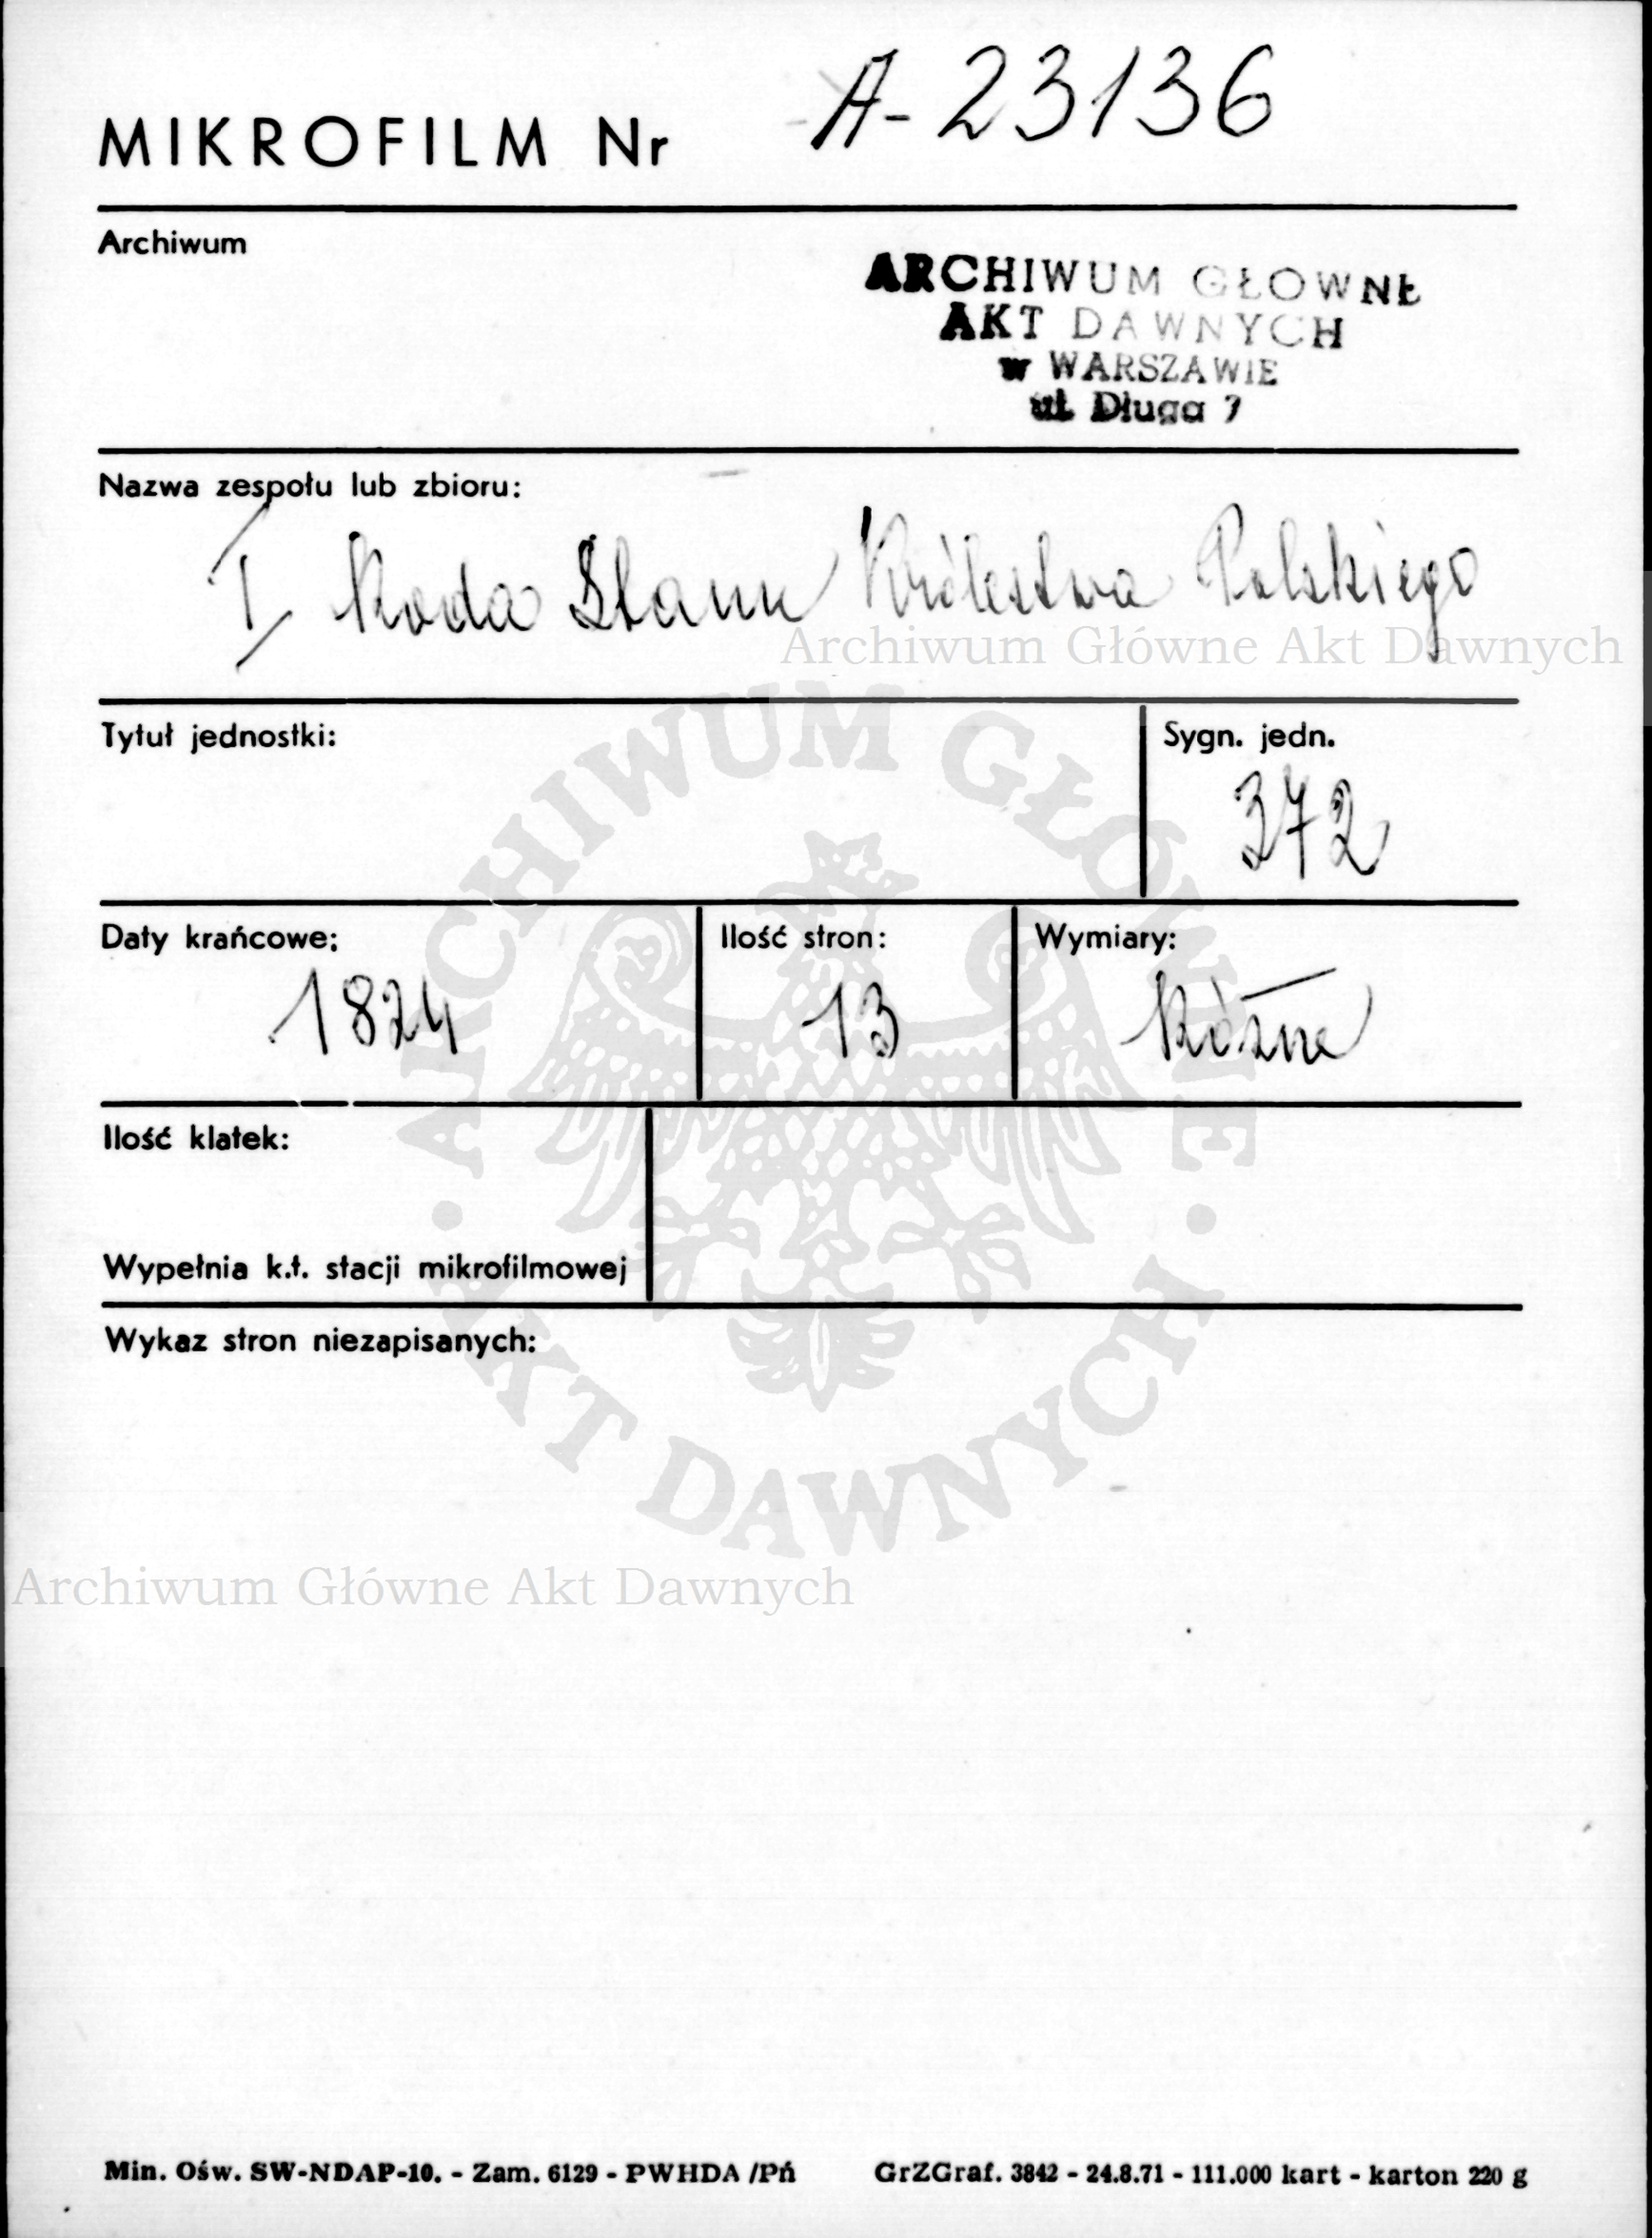 MIKROFILM Nr A-23136
Archiwum
ARCHIWUM GŁOWNE
AKT DAWNYCH
w WARSZAWIE
ul. Długa 7
Nazwa zespołu lub zbioru:
I Rada Stanu Królestwa Polskiego
Archiwum Główne Akt Dawnych
Tytuł jednostki:
Sygn. jedn.
372
ARCHIWUM GŁÓWNE
Daty krańcowe:
Ilość stron:
Wymiary:
1824
13
Różne
Ilość klatek:
Wypełnia k.t. stacji mikrofilmowej
Wykaz stron niezapisanych:
AKT DAWNYCH
Archiwum Główne Akt Dawnych
Min. Ośw. SW-NDAP-10. - Zam. 6129 - PWHDA /Pń
GrZGraf. 3842 - 24.8.71 - 111.000 kart - karton 220 g